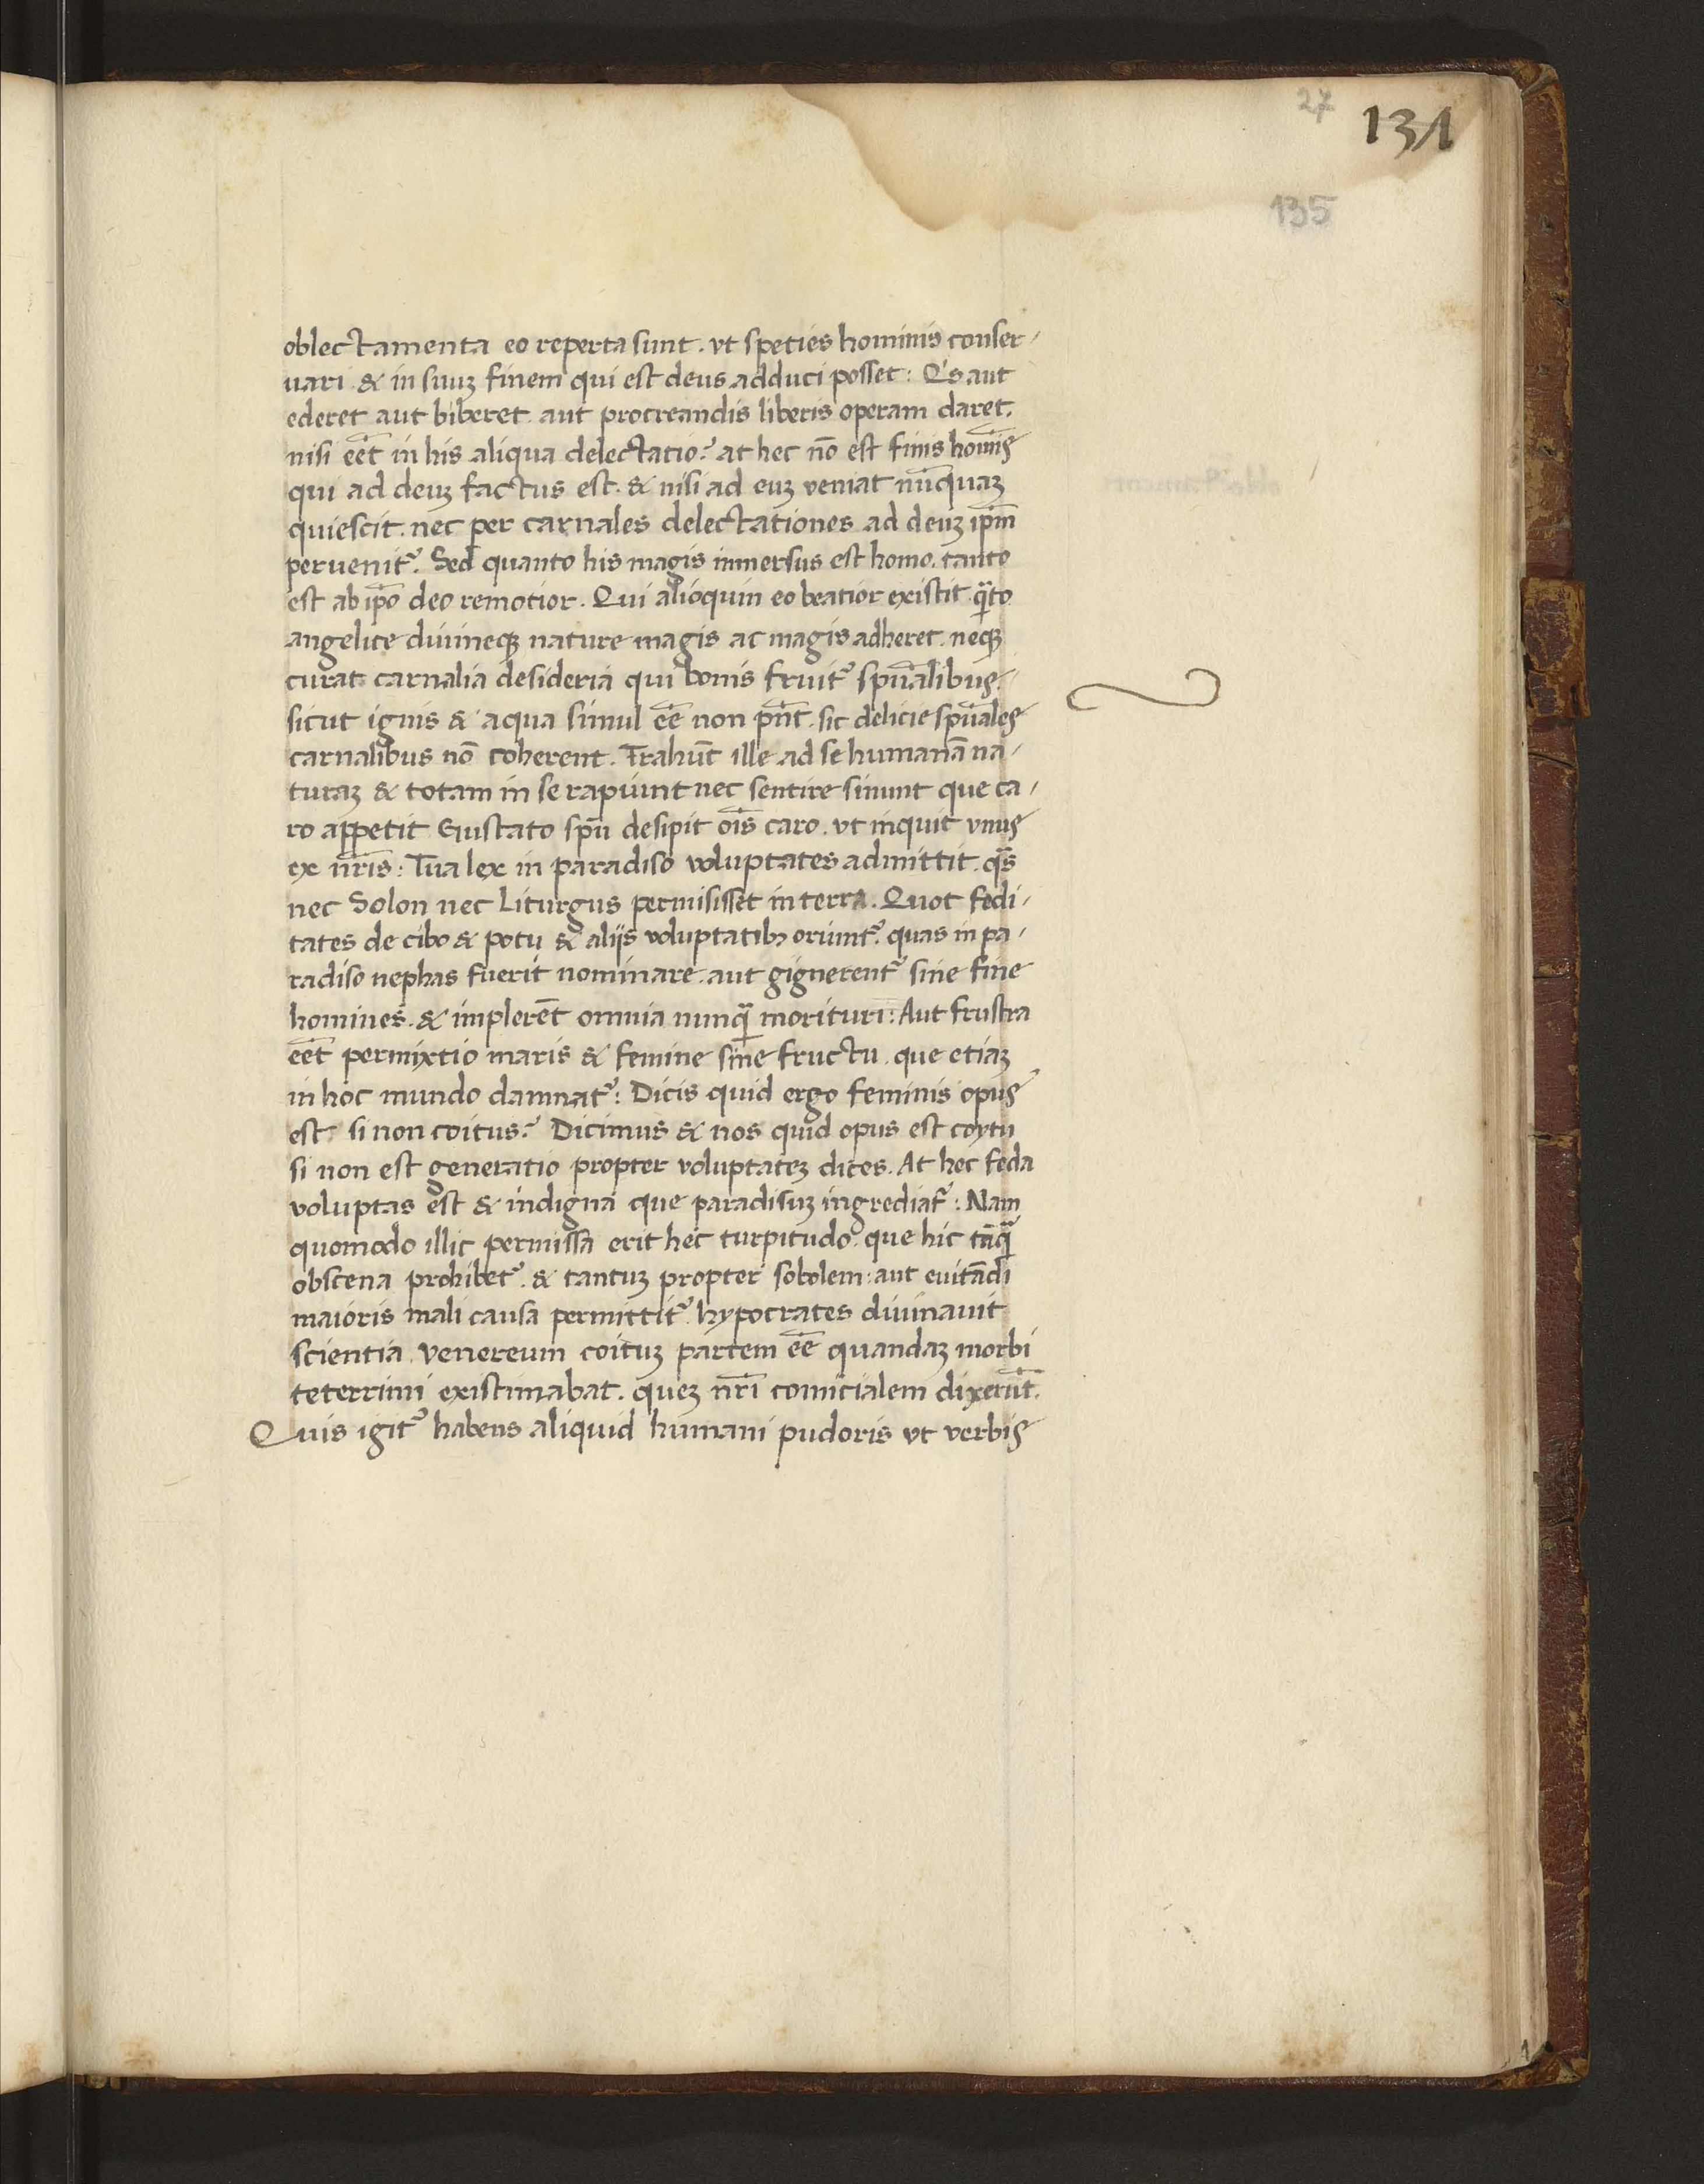 27
131
135
oblectamenta eo reperta sunt. vt speties hominis conser-
uari & in suuꝫ finem qui est deus adduci posset: Q's aut
ederet aut biberet aut procreandis liberis operam daret.
nisi eēt in his aliqua delectatio? at hec nō est finis homīs
qui ad deuꝫ factus est. & nisi ad euꝫ veniat nūcquaꝫ
quiescit. nec per carnales delectationes ad deuꝫ ip̄m
peruenit᷑. Sed quanto his magis inmersus est homo. tanto
est ab ip̄o deo remotior. Qui alioquin eo beatior existit qᷓto
angelice diuineqꝫ nature magis ac magis adheret. neqꝫ
curat carnalia desideria qui bonis fruit᷑ spūalibus.
sicut ignis & aqua simul eē non pn̄t. sic delicie spūales
carnalibus nō coherent. Trahūt ille ad se humanā na-
turaꝫ & totam in se rapiunt nec sentire sinunt que ca-
ro appetit Gustato spū desipit oīs caro. vt inquit vnus
ex nr̄is: Tua lex in paradiso voluptates admittit. qᷓs
nec Solon nec Liturgus permisisset in terra. Quot fedi-
tates de cibo & potu & aliis voluptatibꝫ oriunt᷑. quas in pa-
radiso nephas fuerit nominare. aut gignerent᷑ sine fine
homines. & implerēt omnia nunqᷓ morituri: Aut frustra
eēt permixtio maris & femine sine fructu. que etiaꝫ
in hoc mundo damnat᷑: Dicis quid ergo feminis opus
est si non coitus? Dicimus & nos quid opus est coytu
si non est generatio propter voluptateꝫ dices. At hec feda
voluptas est & indigna que paradisuꝫ ingrediat᷑: Nam
quomodo illic permissa erit hec turpitudo. que hic tāqᷓ
obscena prohibet᷑. & tantuꝫ propter sobolem: aut euitādi
maioris mali causa permittit᷑. hypocrates diuinauit
scientia venereum coituꝫ partem eē quandaꝫ morbi
teterrimi existimabat. queꝫ nr̄i comicialem dixerūt.
Quis igit᷑ habens aliquid humani pudoris vt verbis